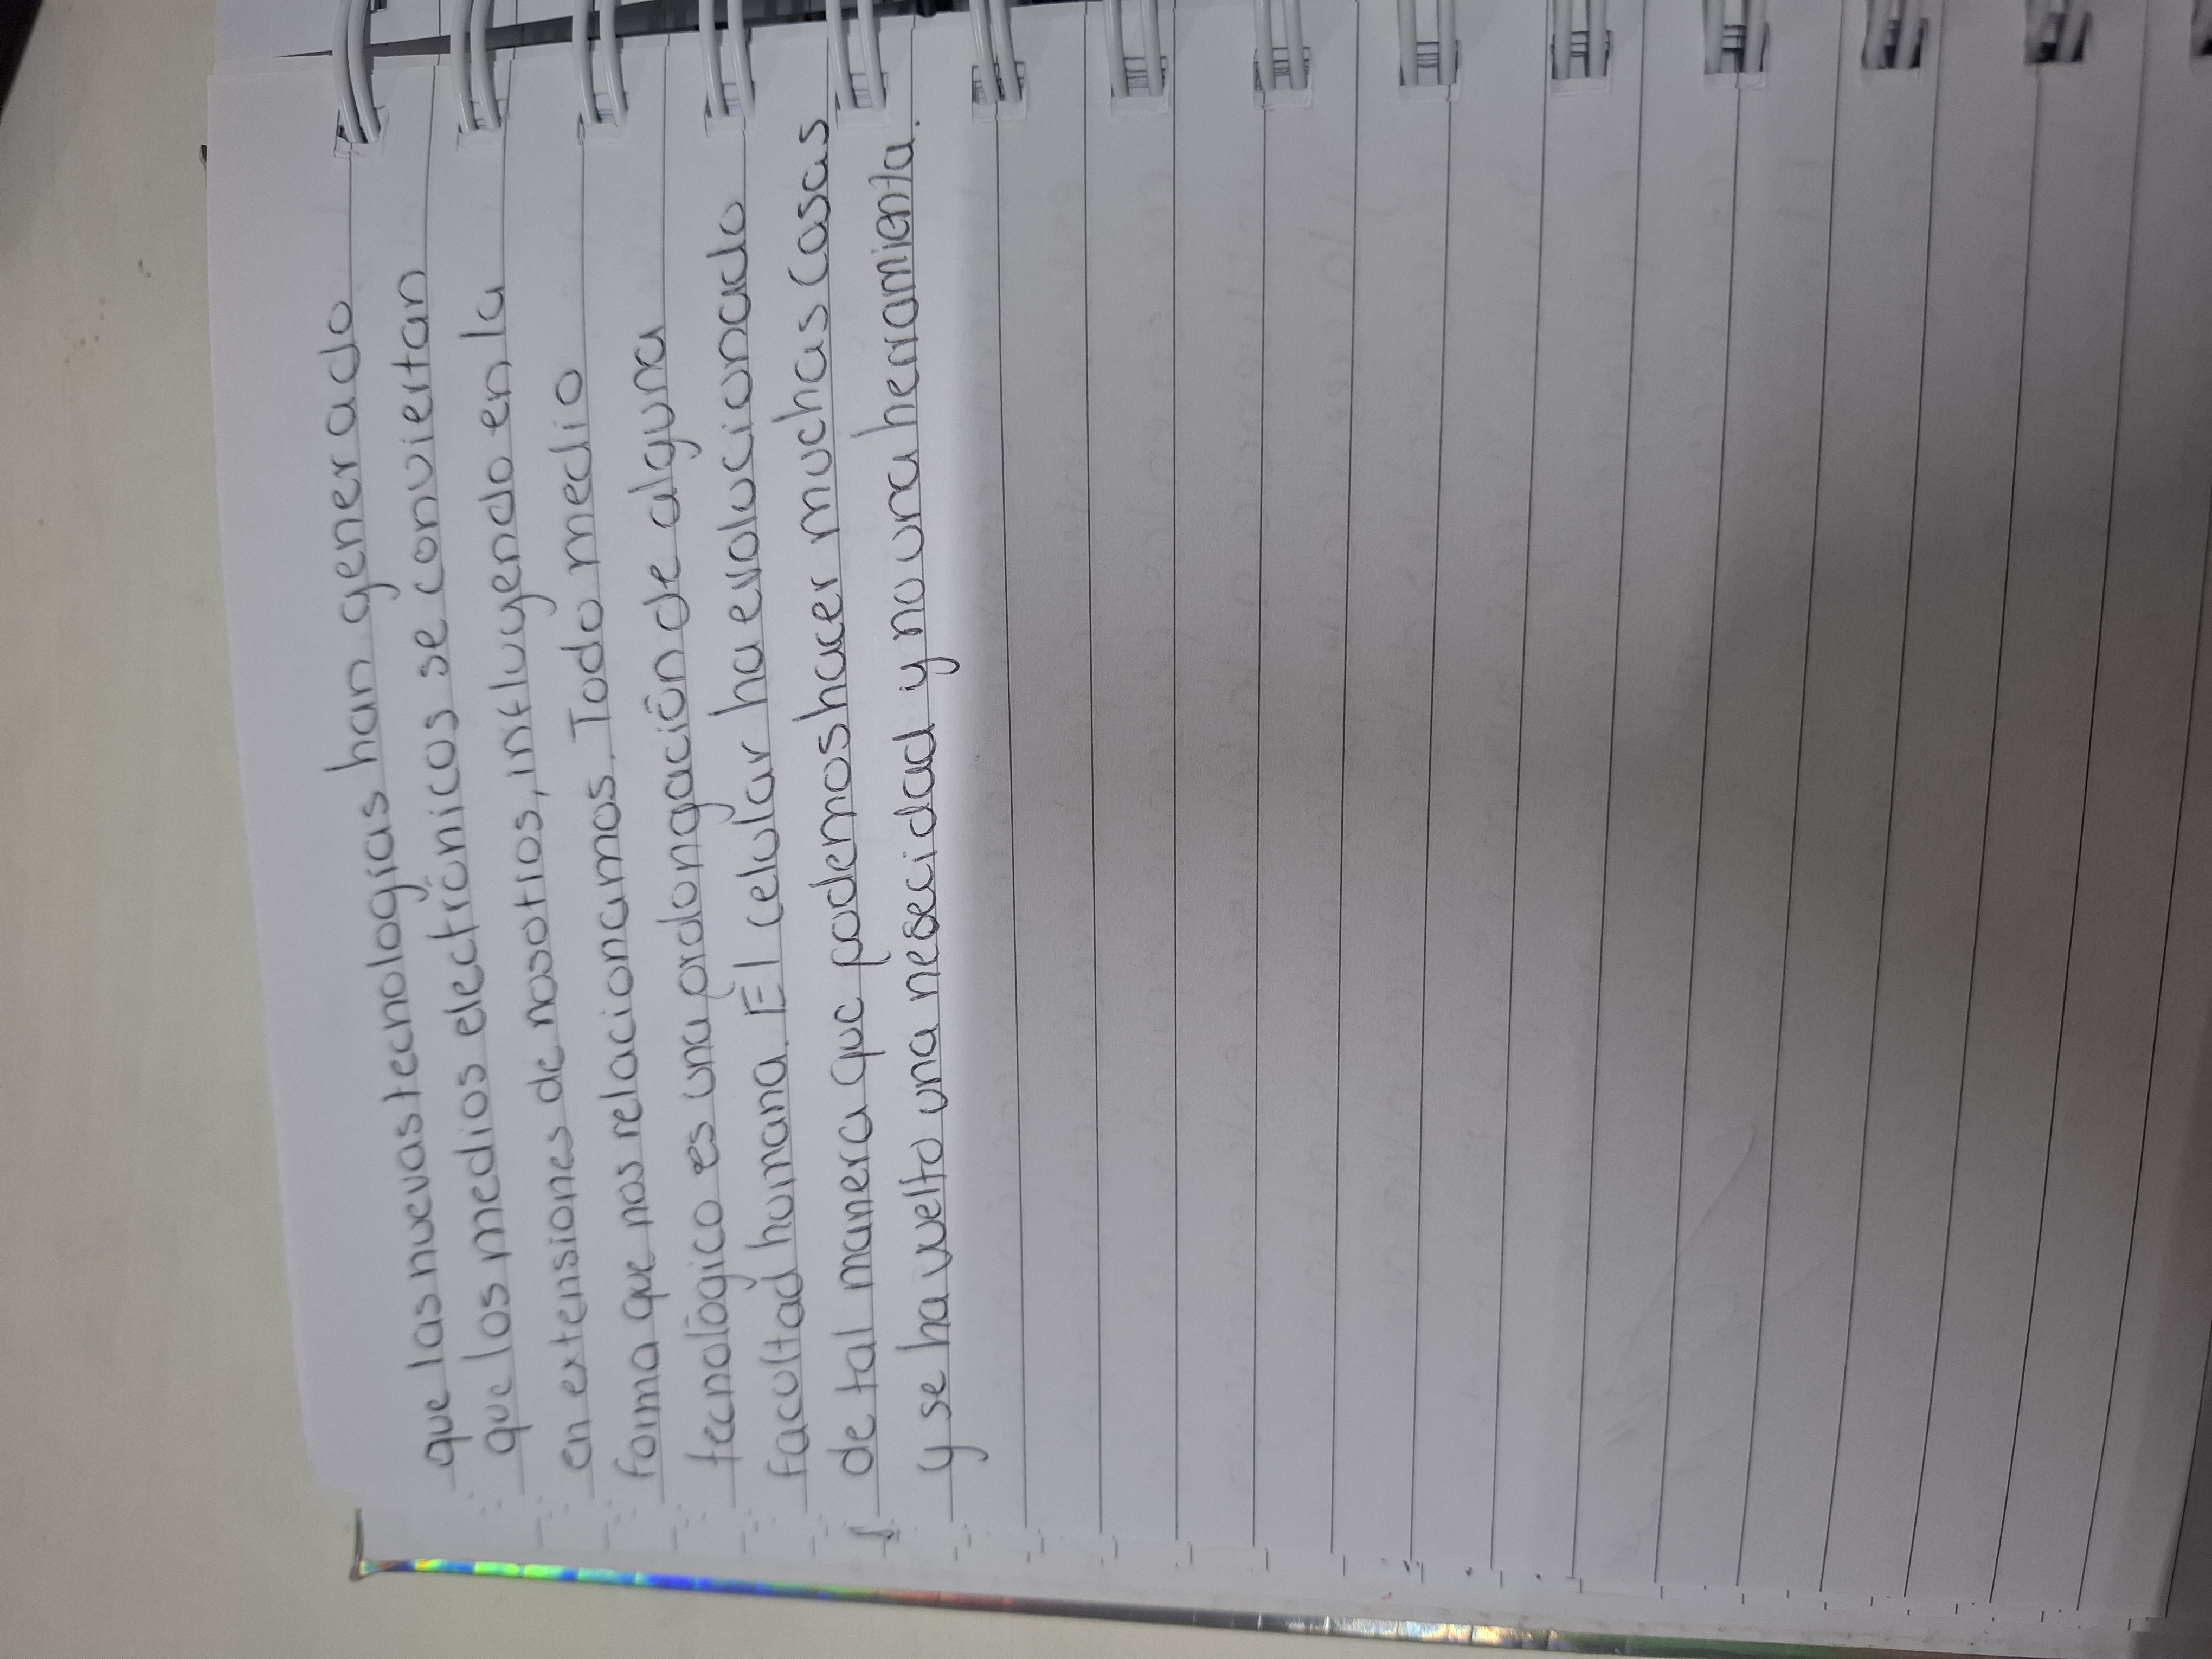 que las nuevas tecnologías han generado
que los medios electrónicos se conviertan
en extensiones de nosotros, influyendo en la
forma que nos relacionamos. Todo medio
tecnológico es una prolongación de alguna
facultad humana. El celular ha evolucionado
de tal manera que podemos hacer muchas cosas
y se ha vuelto una nesecidad y no una herramienta.